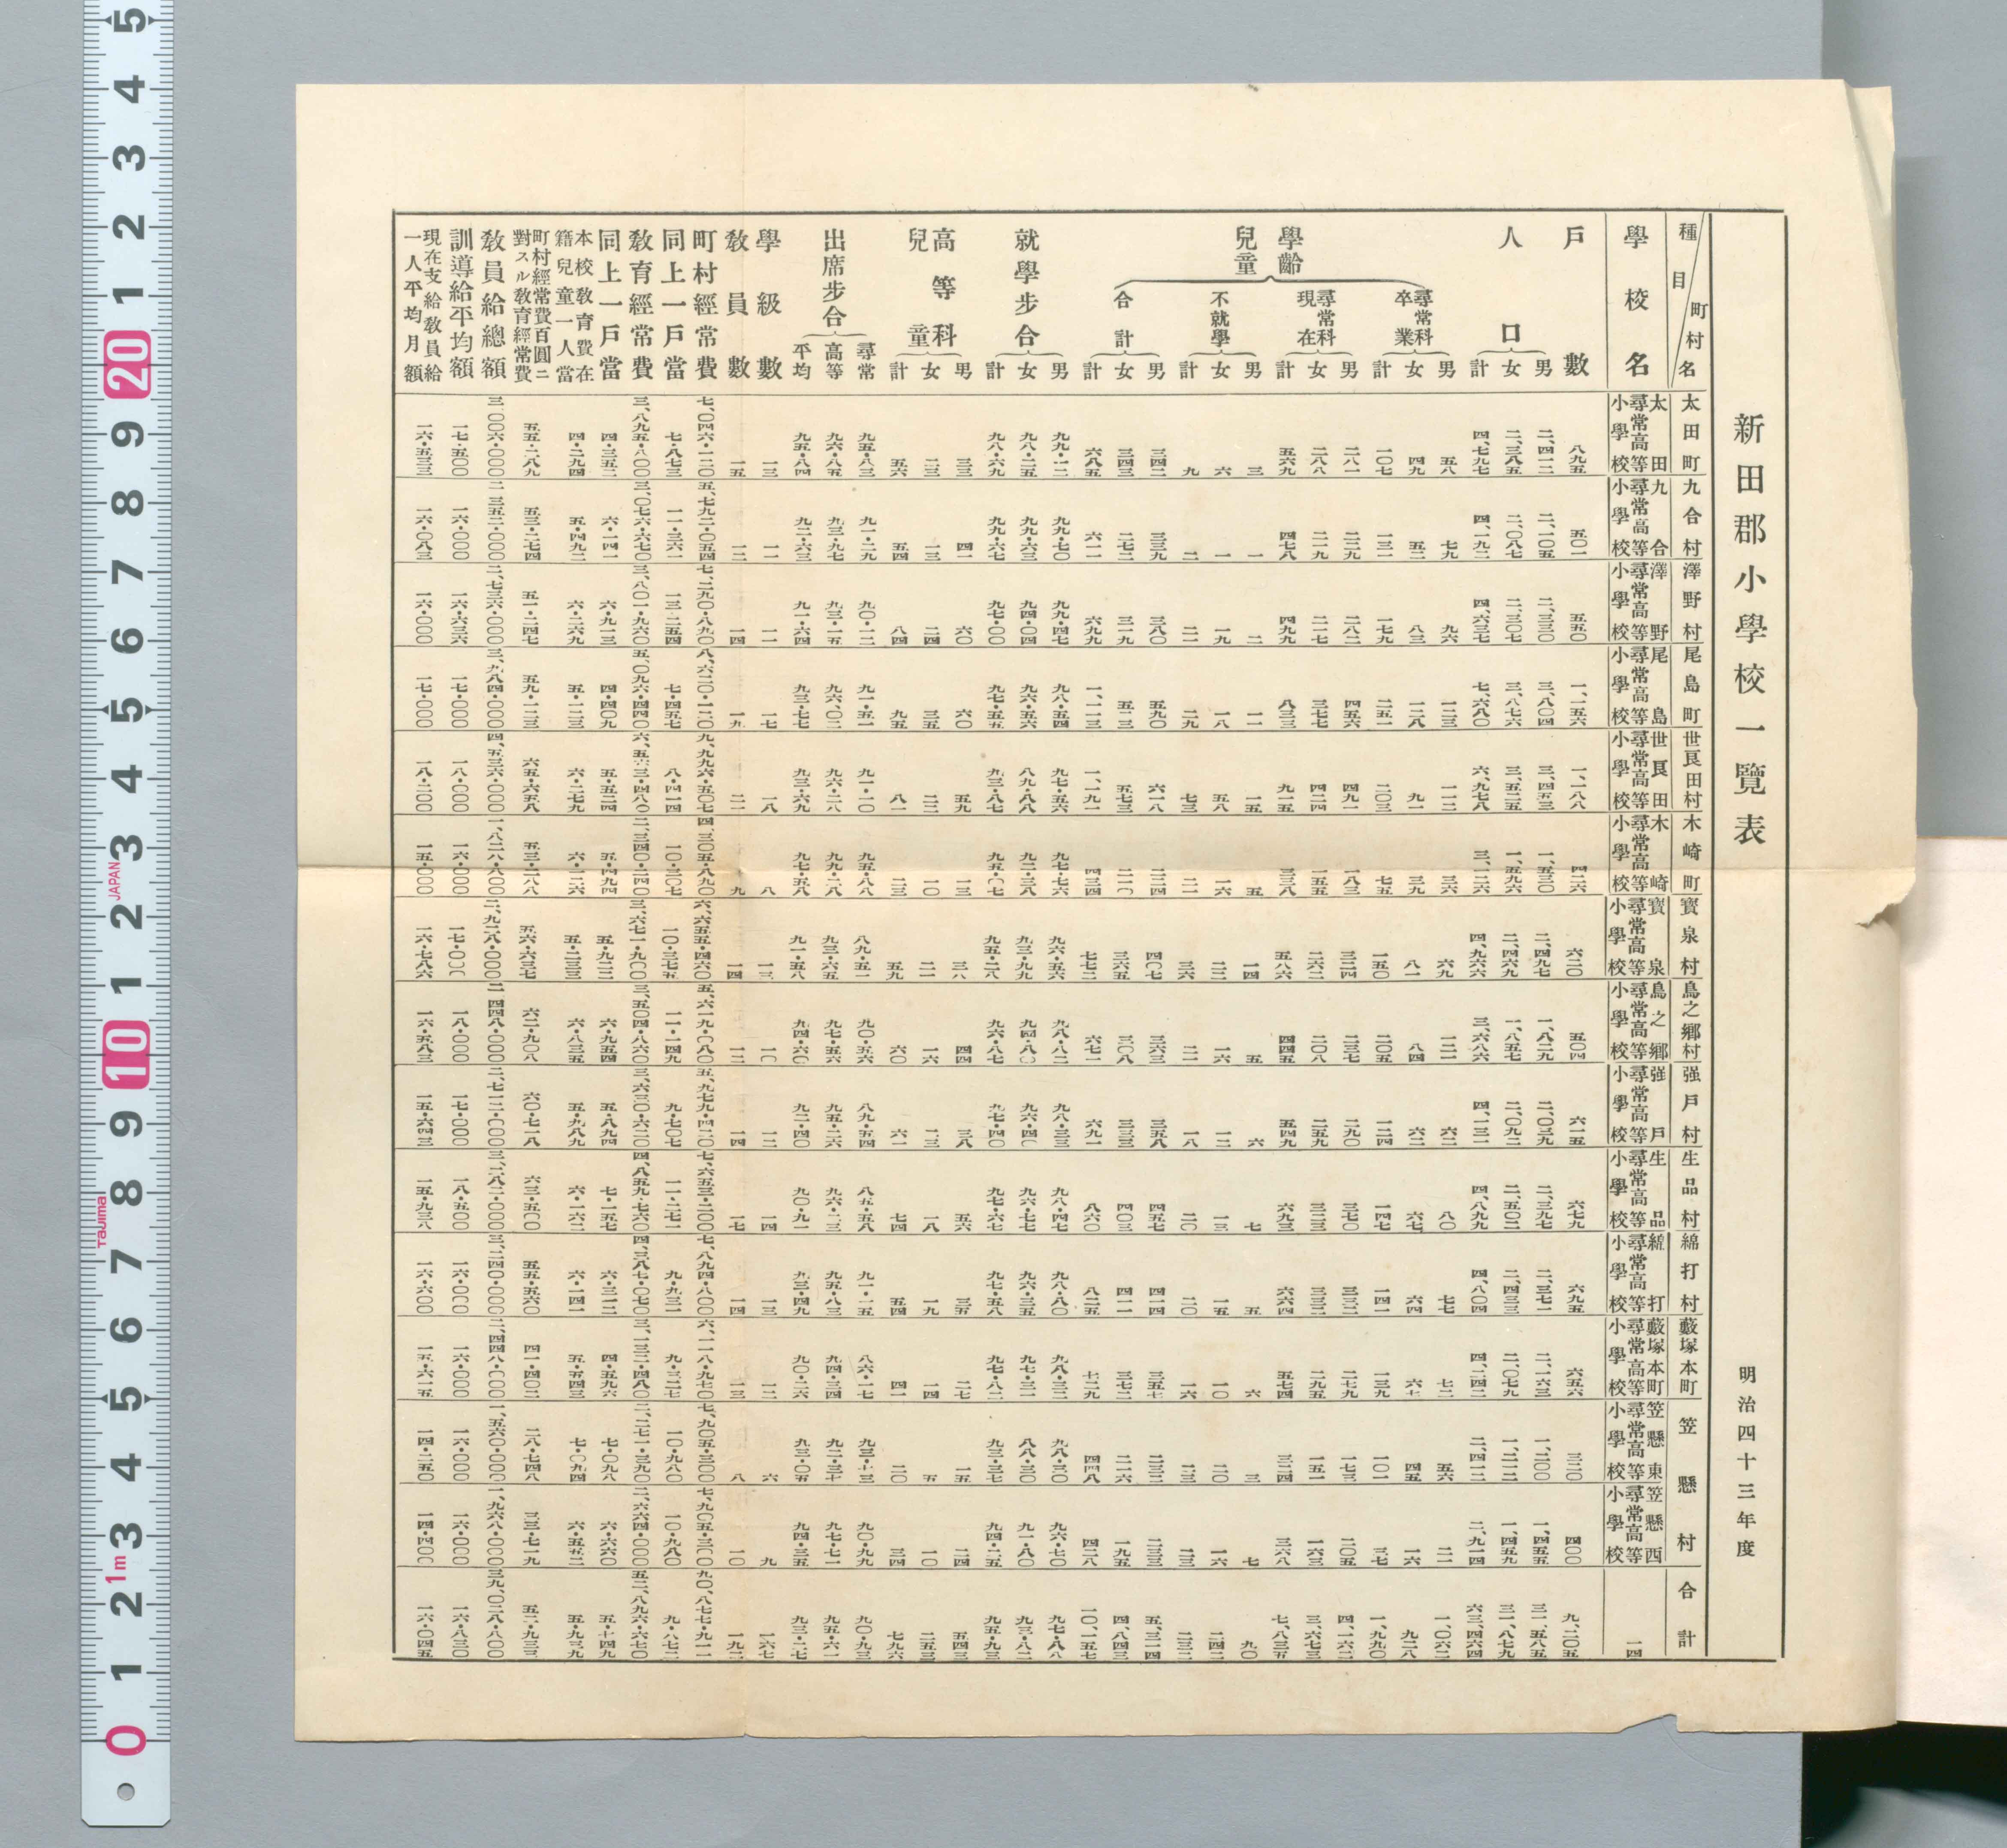 新田郡小學校一覽表 明治四十三年度
種目 町村名 太田町 九合村 澤野村 尾島町 世良田村 木崎町 寶泉村 鳥之鄉村 强戶村 生品村 綿打村 藪塚本町 笠懸村 合計
學校名 太田尋常高等小學校 九合尋常高等小學校 澤野尋常高等小學校 尾島尋常高等小學校 世良田尋常高等小學校 木崎尋常高等小學校 寶泉尋常高等小學校 鳥之鄉尋常高等小學校 强戶尋常高等小學校 生品尋常高等小學校 綿打尋常高等小學校 藪塚本町尋常高等小學校 笠懸東尋常高等小學校 笠懸西尋常高等小學校 一四
戶數 八九五 五〇一 五五〇 一、一五六 一、一八八 四二六 六二〇 五〇四 六一五 六七九 六九五 六五六 三二〇 四〇〇 九、二〇五
人口 男 二、四一二 二、一〇五 二、三三〇 三、八〇四 三、四五三 一、五三〇 二、四九七 一、八二九 二、〇三九 二、三九七 二、三七一 二、一六三 一、二〇〇 一、四五五 三一、五八五
女 二、三八五 二、〇八七 二、三〇七 三、八七六 三、五二五 一、五九六 二、四六九 一、八五七 二、〇九二 二、五〇二 二、四三三 二、〇七九 一、二一二 一、四五九 三一、八七九
計 四、七九七 四、一九二 四、六三七 七、六八〇 六、九七八 三、一二六 四、九六六 三、六八六 四、一三一 四、八九九 四、八〇四 四、二四二 二、四一二 二、九一四 六三、四六四
學齡兒童 尋常科卒業 男 五八 七九 九六 一二三 一一二 三六 六九 一二一 六二 八〇 七七 七二 五六 二一 一、〇六二
女 四九 五二 八三 一二八 九一 三九 八一 八四 六二 六七 六四 六七 四五 一六 九二八
計 一〇七 一三一 一七九 二五一 二〇三 七五 一五〇 二〇五 一二四 一四七 一四一 一三九 一〇一 三七 一、九九〇
尋常科現在 男 二八一 二五九 二八二 四五六 四九一 一八三 三二四 二三七 二九〇 三七〇 三三二 二七九 一七三 二〇五 四、一六二
女 二八八 二一九 二一七 三七七 四二四 一五五 二六二 二〇八 二五九 三二三 三三二 二九五 一五一 一六三 三、六七三
計 五六九 四七八 四九九 八三三 九一五 三三八 五八六 四四五 五四九 六九三 六六四 五七四 三二四 三六八 七、八三五
不就學 男 三 一 二 一一 一五 五 一四 五 六 七 五 六 三 七 九〇
女 六 一 一九 一八 五八 一六 二二 一六 一二 一三 一五 一〇 二〇 一六 二四二
計 九 二 二一 二九 七三 二一 三六 二一 一八 二〇 二〇 一六 二三 二三 三三二
合計 男 三四二 三三九 三八〇 五九〇 六一八 二二四 四〇七 三六三 三五八 四五七 四一四 三五七 二三二 二三三 五、三一四
女 三四三 二七二 三一九 五二三 五七三 二一〇 三六五 三〇八 三三三 四〇三 四一一 三七二 二一六 一九五 四、八四三
計 六八五 六一一 六九九 一、一一三 一、一九一 四三四 七七二 六七一 六九一 八六〇 八二五 七二九 四四八 四二八 一〇、一五七
就學步合 男 九九・一二 九九・七〇 九九・四七 九八・五四 九七・五六 九七・七六 九六・五六 九八・八二 九八・三三 九八・四七 九八・八〇 九八・三二 九八・三〇 九六・七〇 九七・八八
女 九八・二五 九九・六三 九四・〇四 九六・五六 八九・八八 九二・三八 九三・九九 九四・八〇 九六・四〇 九六・七七 九六・三五 九七・三一 八八・三〇 九一・八〇 九三・八二
計 九八・六九 九九・六七 九七・〇〇 九七・五五 九三・八七 九五・〇七 九五・二八 九六・八七 九七・四〇 九七・六七 九七・五八 九七・八二 九三・三七 九四・二五 九五・九三
高等科兒童 男 三三 四一 六〇 六〇 五九 一三 三八 四四 三八 五六 三五 二七 一五 二四 五四三
女 二三 一三 二四 三五 二二 一〇 二一 一六 二三 一八 一九 一四 五 一〇 二五三
計 五六 五四 八四 九五 八一 二三 五九 六〇 六一 七四 五四 四一 二〇 三四 七九六
出席步合 尋常 九五・八三 九一・二九 九〇・一二 九一・五一 九一・一〇 九五・八八 八九・五一 九〇・五六 八九・五四 八五・五八 九一・一五 八六・一七 九三・七三 九〇・九九 九〇・九三
高等 九六・八五 九三・九七 九三・一五 九六・〇二 九六・二八 九九・二八 九三・六五 九七・五六 九五・二六 九六・二三 九五・八三 九四・三四 九二・三七 九七・七一 九五・六一
平均 九五・八四 九二・六三 九一・六四 九三・七七 九三・六九 九七・五八 九一・五八 九四・六〇 九二・四〇 九〇・九一 九三・四九 九〇・二六 九三・〇五 九四・三五 九三・二七
學級數 一三 一一 一一 一七 一八 八 一三 一〇 一二 一四 一三 一二 六 九 一六七
敎員數 一五 一二 一四 一九 二一 九 一四 一二 一四 一七 一四 一三 八 一〇 一九二
町村經常費 七、〇四六・一二〇 五、七九二・〇五四 七、二九〇・八九〇 八、六二〇・一二〇 九、九九六・五〇七 四、三〇五・八九〇 六、六五五・四六〇 五、六一九・〇八〇 五、九七九・四二〇 七、六五三・二〇〇 七、八九四・八〇〇 六、一一八・九七〇 七、九〇五・三〇〇 七、九〇五・三〇〇 九〇、八七七・九一一
同上一戶當 七・八七三 一一・三六一 一三・二五四 七・四五七 八・四一四 一〇・三〇七 一〇・三七五 一一・一四九 九・七〇七 一一・二七一 九・九三一 九・三二七 一〇・九八〇 一〇・九八〇 九・八七二
敎育經常費 三、八九五・八〇〇 三、〇七六・六七〇 三、八〇一・九六〇 五、〇九六・四四〇 六、五六三・四八〇 二、三四〇・二四〇 三、六七一・九〇〇 三、五〇四・八六〇 三、六三〇・六二〇 四、八五九・七六〇 四、三八七・〇七〇 三、一三二・四八〇 二、二七一・三九〇 二、六六四・〇〇〇 五二、八九六・六七〇
同上一戶當 四・三五二 六・一四一 六・九一三 四・四〇九 五・五二四 五・四九四 五・九二二 六・九五四 五・八九四 七・一五七 六・三一二 四・五九六 七・〇九八 六・六六〇 五・七四九
本校敎育費在籍兒童一人當 四・二九四 五・四九二 六・二六九 五・一二三 六・二七九 六・一二六 五・二三三 六・八三五 五・九八九 六・一六二 六・一四一 五・五四三 七・〇九四 六・五五二 五・九三九
町村經常費百圓ニ對スル敎育經常費 五五・二八九 五三・二七四 五一・二四七 五九・一二三 六五・六五八 五三・二八八 五六・六三七 六二・九〇八 六〇・七一八 六三・五〇〇 五五・五六〇 四一・四〇二 二八・七四八 三三・七一九 五二・九三三
敎員給總額 三、〇〇六・〇〇〇 二、三五二・〇〇〇 二、七三六・〇〇〇 三、九八四・〇〇〇 四、五三六・〇〇〇 一、八二八・八〇〇 二、九二八・〇〇〇 二、四四八・〇〇〇 二、七一二・〇〇〇 三、二八二・〇〇〇 三、二四〇・〇〇〇 二、四四八・〇〇〇 一、五六〇・〇〇〇 一、九六八・〇〇〇 三九、〇二八・八〇〇
訓導給平均額 一七・五〇〇 一六・〇〇〇 一六・六三六 一七・〇〇〇 一八・〇〇〇 一六・〇〇〇 一七・〇〇〇 一八・〇〇〇 一七・〇〇〇 一八・五〇〇 一六・〇〇〇 一六・〇〇〇 一六・〇〇〇 一六・〇〇〇 一六・八三〇
現在支給敎員給一人平均月額 一六・五三三 一六・〇八三 一六・〇〇〇 一七・〇〇〇 一八・二〇〇 一五・〇〇〇 一六・七八六 一六・五八三 一五・六四三 一五・九三八 一六・六〇〇 一五・六一五 一四・二五〇 一四・四〇〇 一六・〇四五
0 1 2 1m 3 4 5 6 7 Tajima 8 9 10 1 2 JAPAN 3 4 5 6 7 8 9 20 1 2 3 4 5